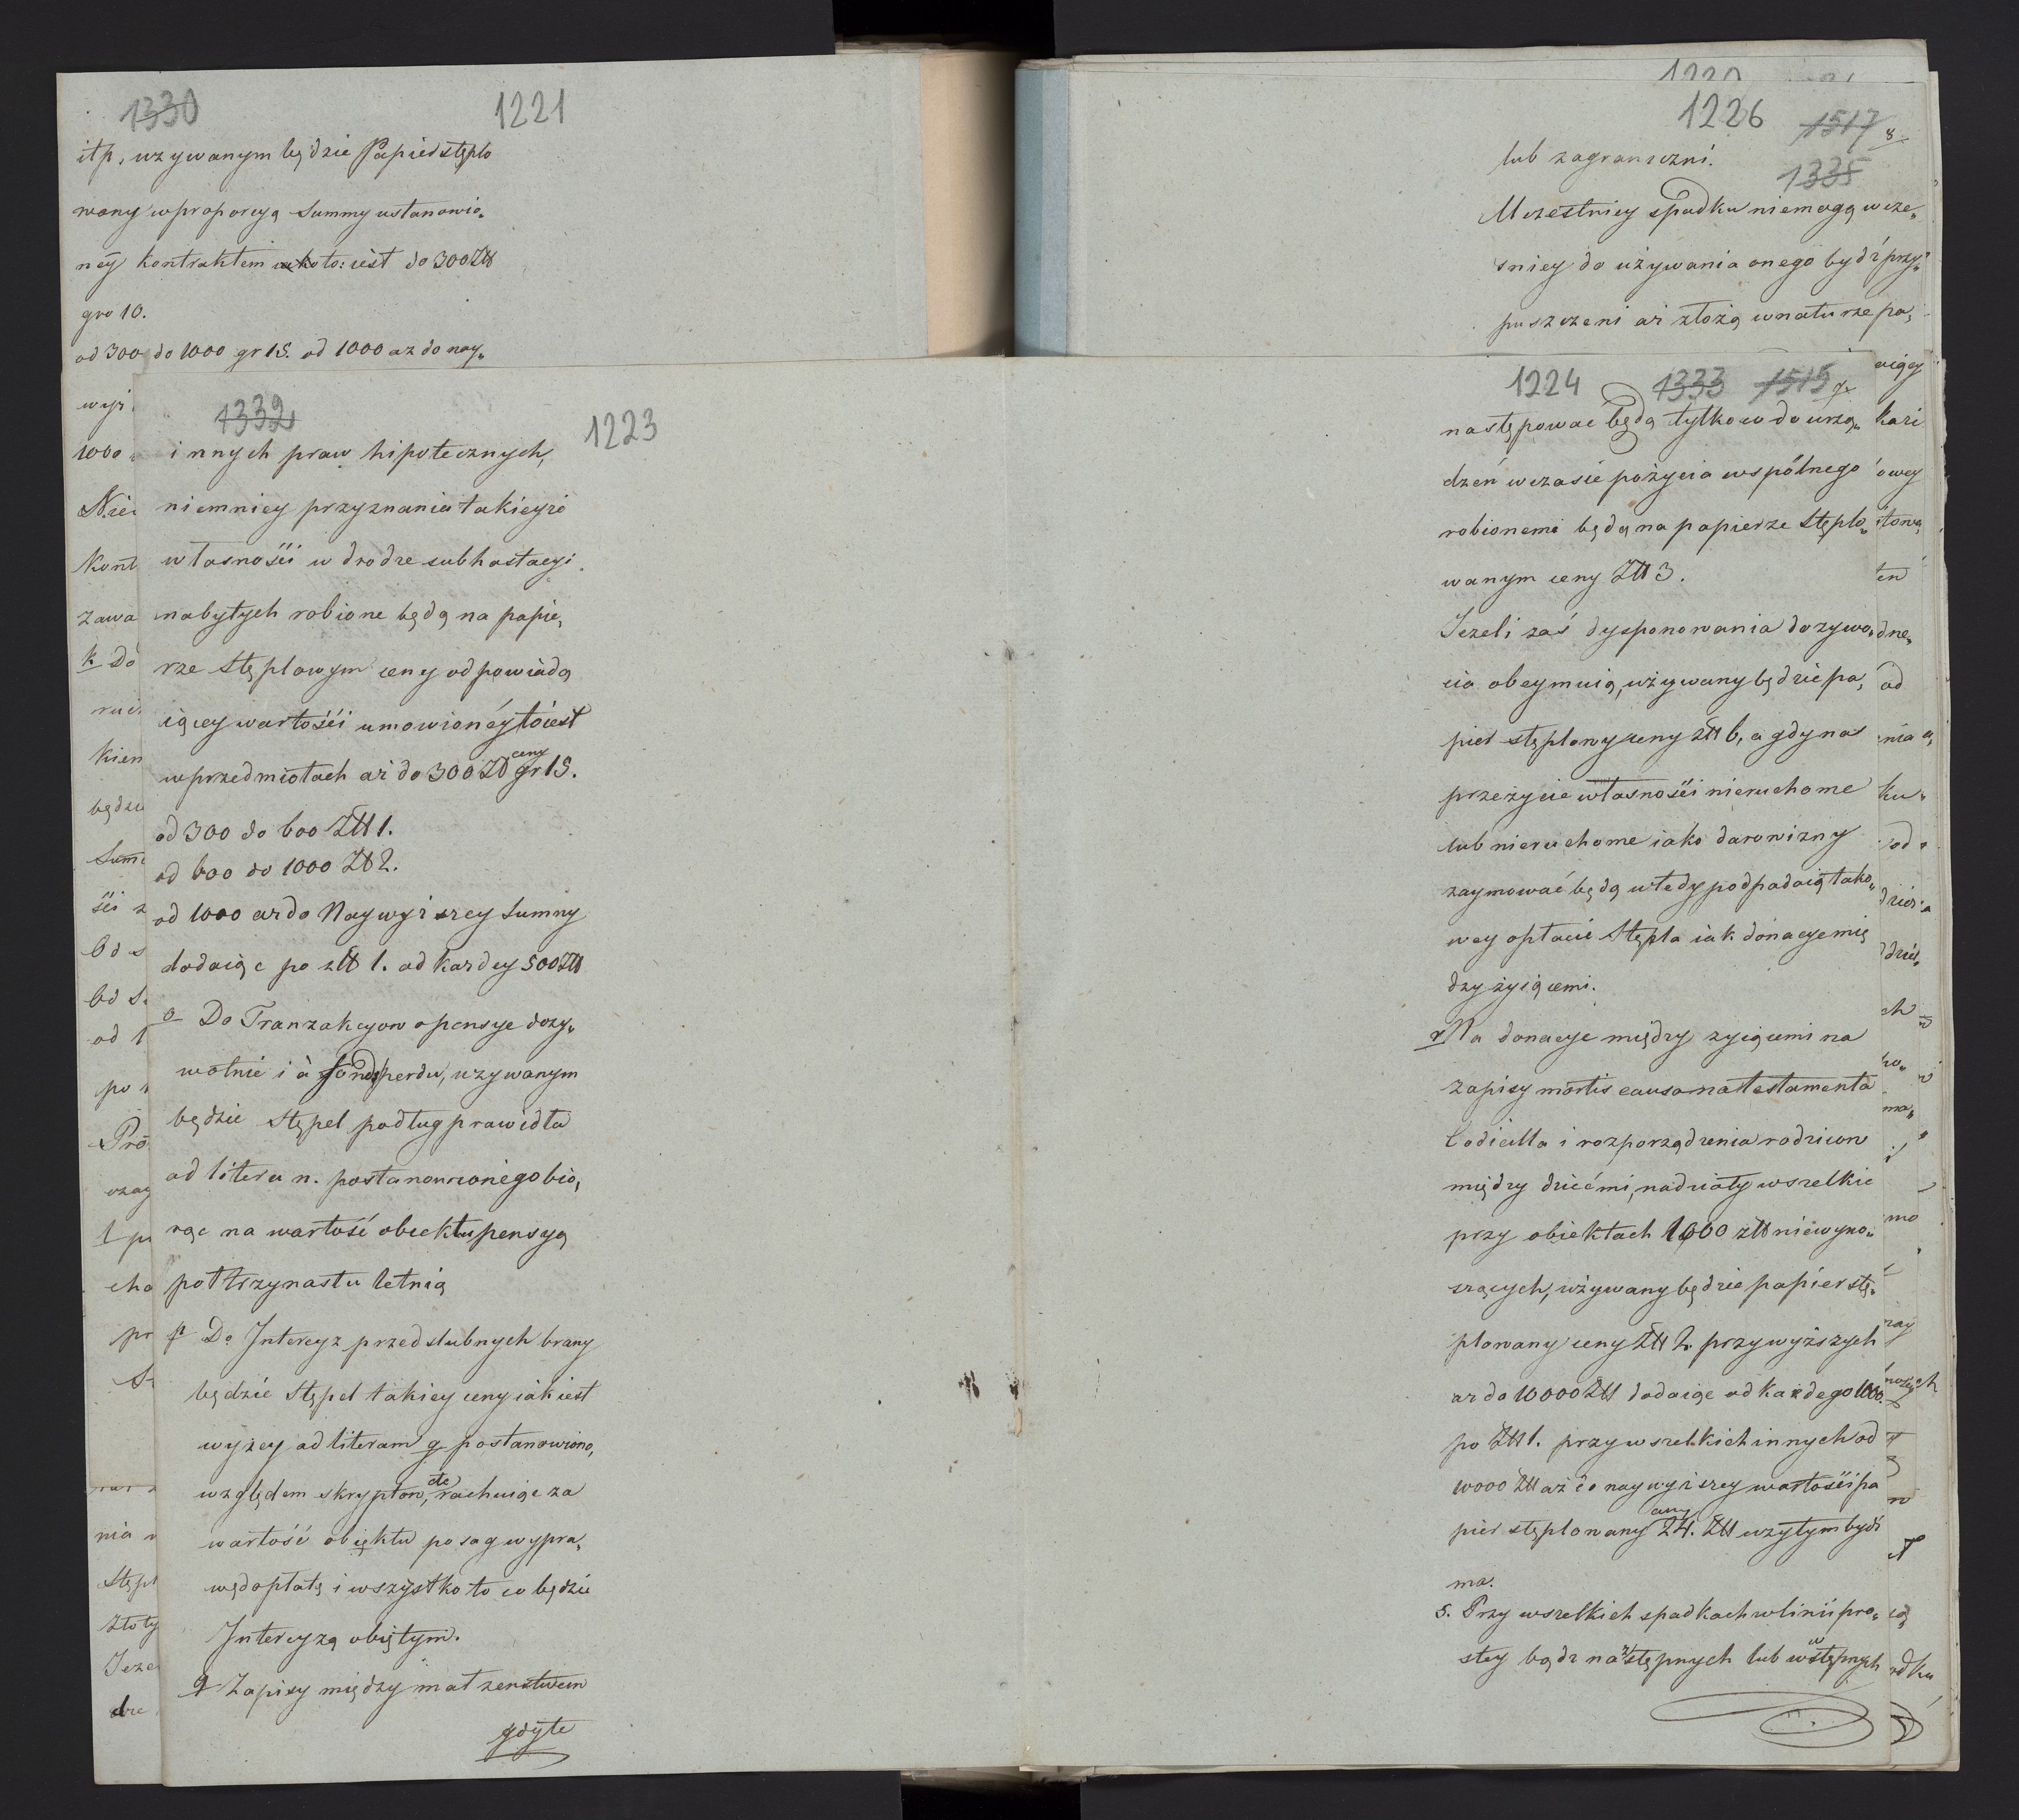 1330 1221
itp. uzywanym będzie Papier stęplo
wany w proporcyą Summy ustanowio„
néy kontraktem to: iest do 300 Złł
gro 10.
od 300 do 1000 gr 15. od 1000 az do nay„
wyż
1000
Nie
Kont
zawa
k Do
kiem
będzie
Summ
ści z
Od s
od 1
po
Pro
l pr
cho
pr
nia
Stępl
złoty
Jeze
1332 1223
innych praw hipotecznych,
niemniey przyznania takieyże
własności w drodze subhastacyi
nabytych robione będą na papie„
rze Stęplowym ceny odpowiada
iącey wartości umowionéy to iest
w przedmiotach aż do 300 Zł ceny gr 15.
od 300 do 600 Złł 1.
od 600 do 1000 Zł 2.
od 1000 aż do Naywyższey Summy
dodaiąc po złł 1. od kazdey 500 Złł
o Do Tranzakcyow o pensye dozy„
wotnie i à fonds perdu, uzywanym
będzie Stępel podług prawidła
ad litera n. postanowionego bio„
rąc na wartość obiektu pensyą
półtrzynastu letnią
p Do Intercyz przedslubnych brany
będzie Stępel takiey ceny iak iest
wyżey ad literam g postanowiono,
względem skryptow, etc rachuiąc za
wartość obiektu posag wypra„
wę dopłatę i wszystko to co będzie
Intercyzą obiętym.
q Zapisy między małzenstwem
gdy te
1220
1226 1517 8
lub zagraniczni. 1335
Uczestnicy spadku niemogą wcze„
sniey do używania onego bydź przy„
puszczeni aż złożą w naturze pa„
1224 1333 1515 7
następować będą tylko w do urzą„
dzeń w czasie pożycia wspólnego
robionemi będą na papierze Stęplo„
wanym ceny Złł 3.
Jezeli zaś dysponowania dozywo„
cia obeymuią, używany będzie pa„
pier stęplowy ceny złł 6, a gdy na
przeżycie własności nieruchome
lub nieruchome iako darowizny
zaymować będą wtedy podpadaią tako„
wey opłacie Stępla iak donacye mię
dzy żyiącemi.
r Na donacye między zyiącemi na
zapisy mortis causa na testamenta
Codicilla i rozporządzenia rodzicow
między dziećmi, nadziały wszelkie
przy obiektach 1000 złł niewyno„
szących, używany będzie papier stę„
plowany ceny Złł 2. przy wyższych
aż do 10000 Złł dodaiąc od każdego 1000.
po Złł 1. przy wszelkich innych od
10000 Złł aż do naywyższey wartości pa
pier stęplowany ceny 24. Złł uzytym bydź
ma.
s. Przy wszelkich spadkach w linii pro„
stey bądz następnych lub wstępnych